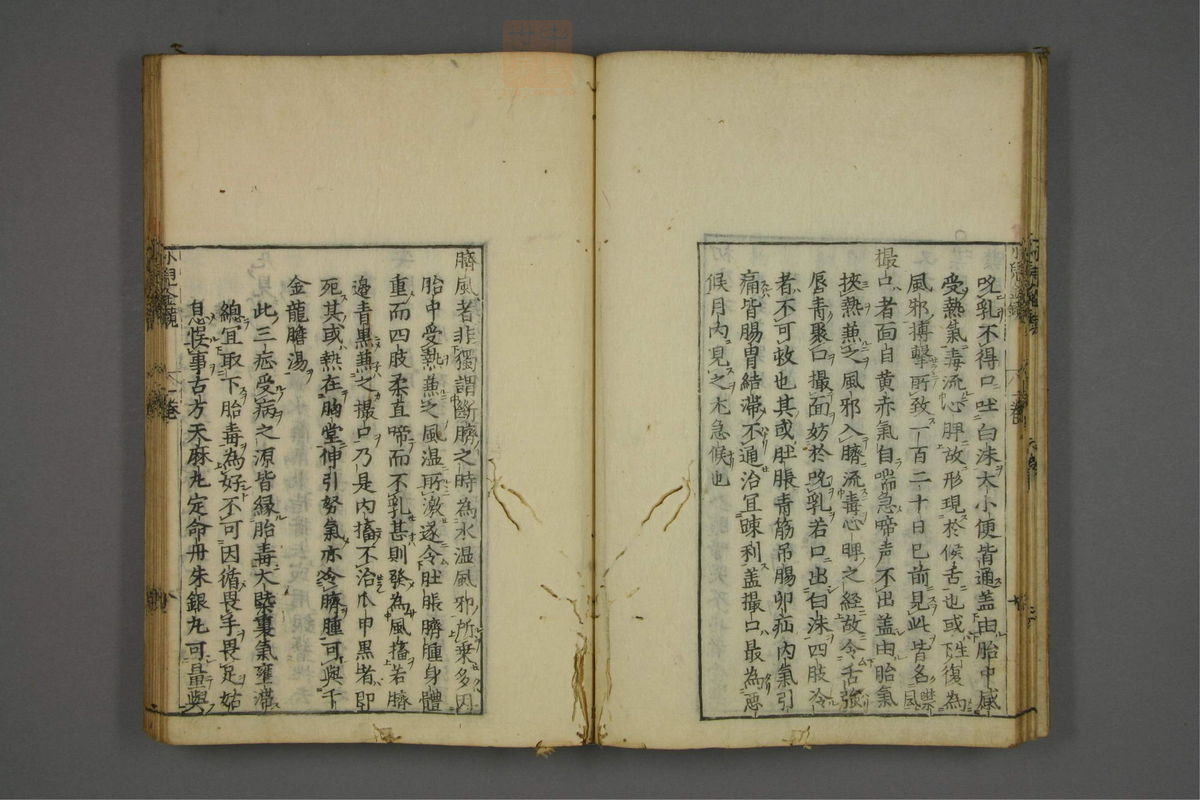 吮乳不得口吐白沫大小便皆通盖由胎中感
受熱氣毒流心脾故形現於候舌也或生下復為
風邪搏擊所致一百二十日已前見此皆名噤風
撮口者面目黄赤氣自喘急啼声不出盖由胎氣
挾熱兼之風邪入臍流毒心脾之経故令舌強
唇青聚口撮面妨於吮乳若口出白沫四肢冷
者不可救也其或肚脹青筋吊腸卵疝内氣引
痛皆腸胃結滞不通治宜踈利盖撮口最為悪
候月内見之尤急候也
臍風者非獨謂断臍之時為水温風邪所乗多因
胎中受熱兼之風温所激逐令肚脹臍腫身體
重而四肢柔直啼而不乳甚則發為風搐若臍
邉青黒兼之撮口乃是内搐不治爪甲黒者即
死其或熱在胸堂伸引努氣亦冷臍腫可與千
金龍膽湯
此三症受病之源皆縁胎毒大槩裏氣壅滞
總宜取下胎毒為好不可因循畏手畏足姑
息悮事古方天麻丸定命丹朱銀丸可量與